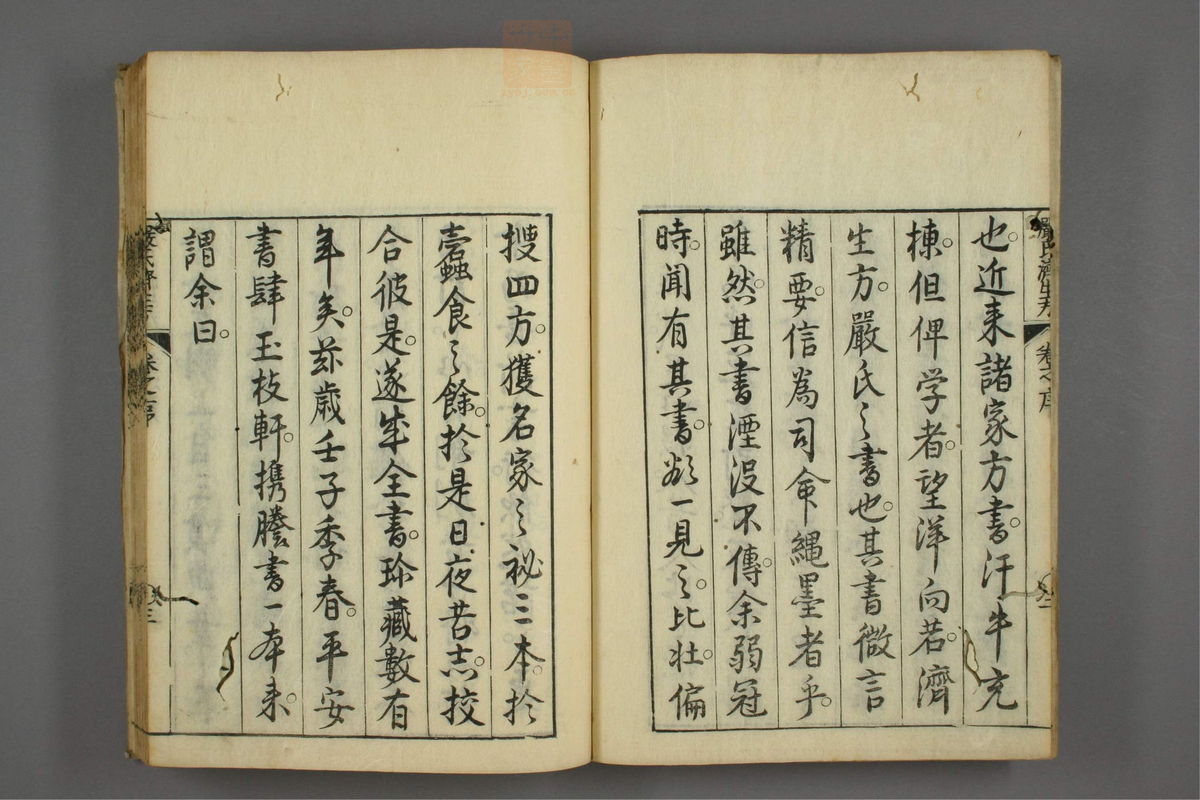 也。近来諸家方書。汗牛充
棟。但俾学者。望洋向若。濟
生方。嚴氏之書也。其書微言
精要。信為司命繩墨者乎。
雖然。其書湮沒不傳。余弱冠
時。聞有其書。欲一見之。比壮。偏
搜四方。獲名家之祕三本。於
蠧蟲食之餘。於是日夜苦志。挍
合彼是。遂成全書。珍藏數有
年矣。茲歲壬子季春。平安
書肆玉枝軒。携謄書一本来。
謂余曰。
嚴氏濟生方
卷之序